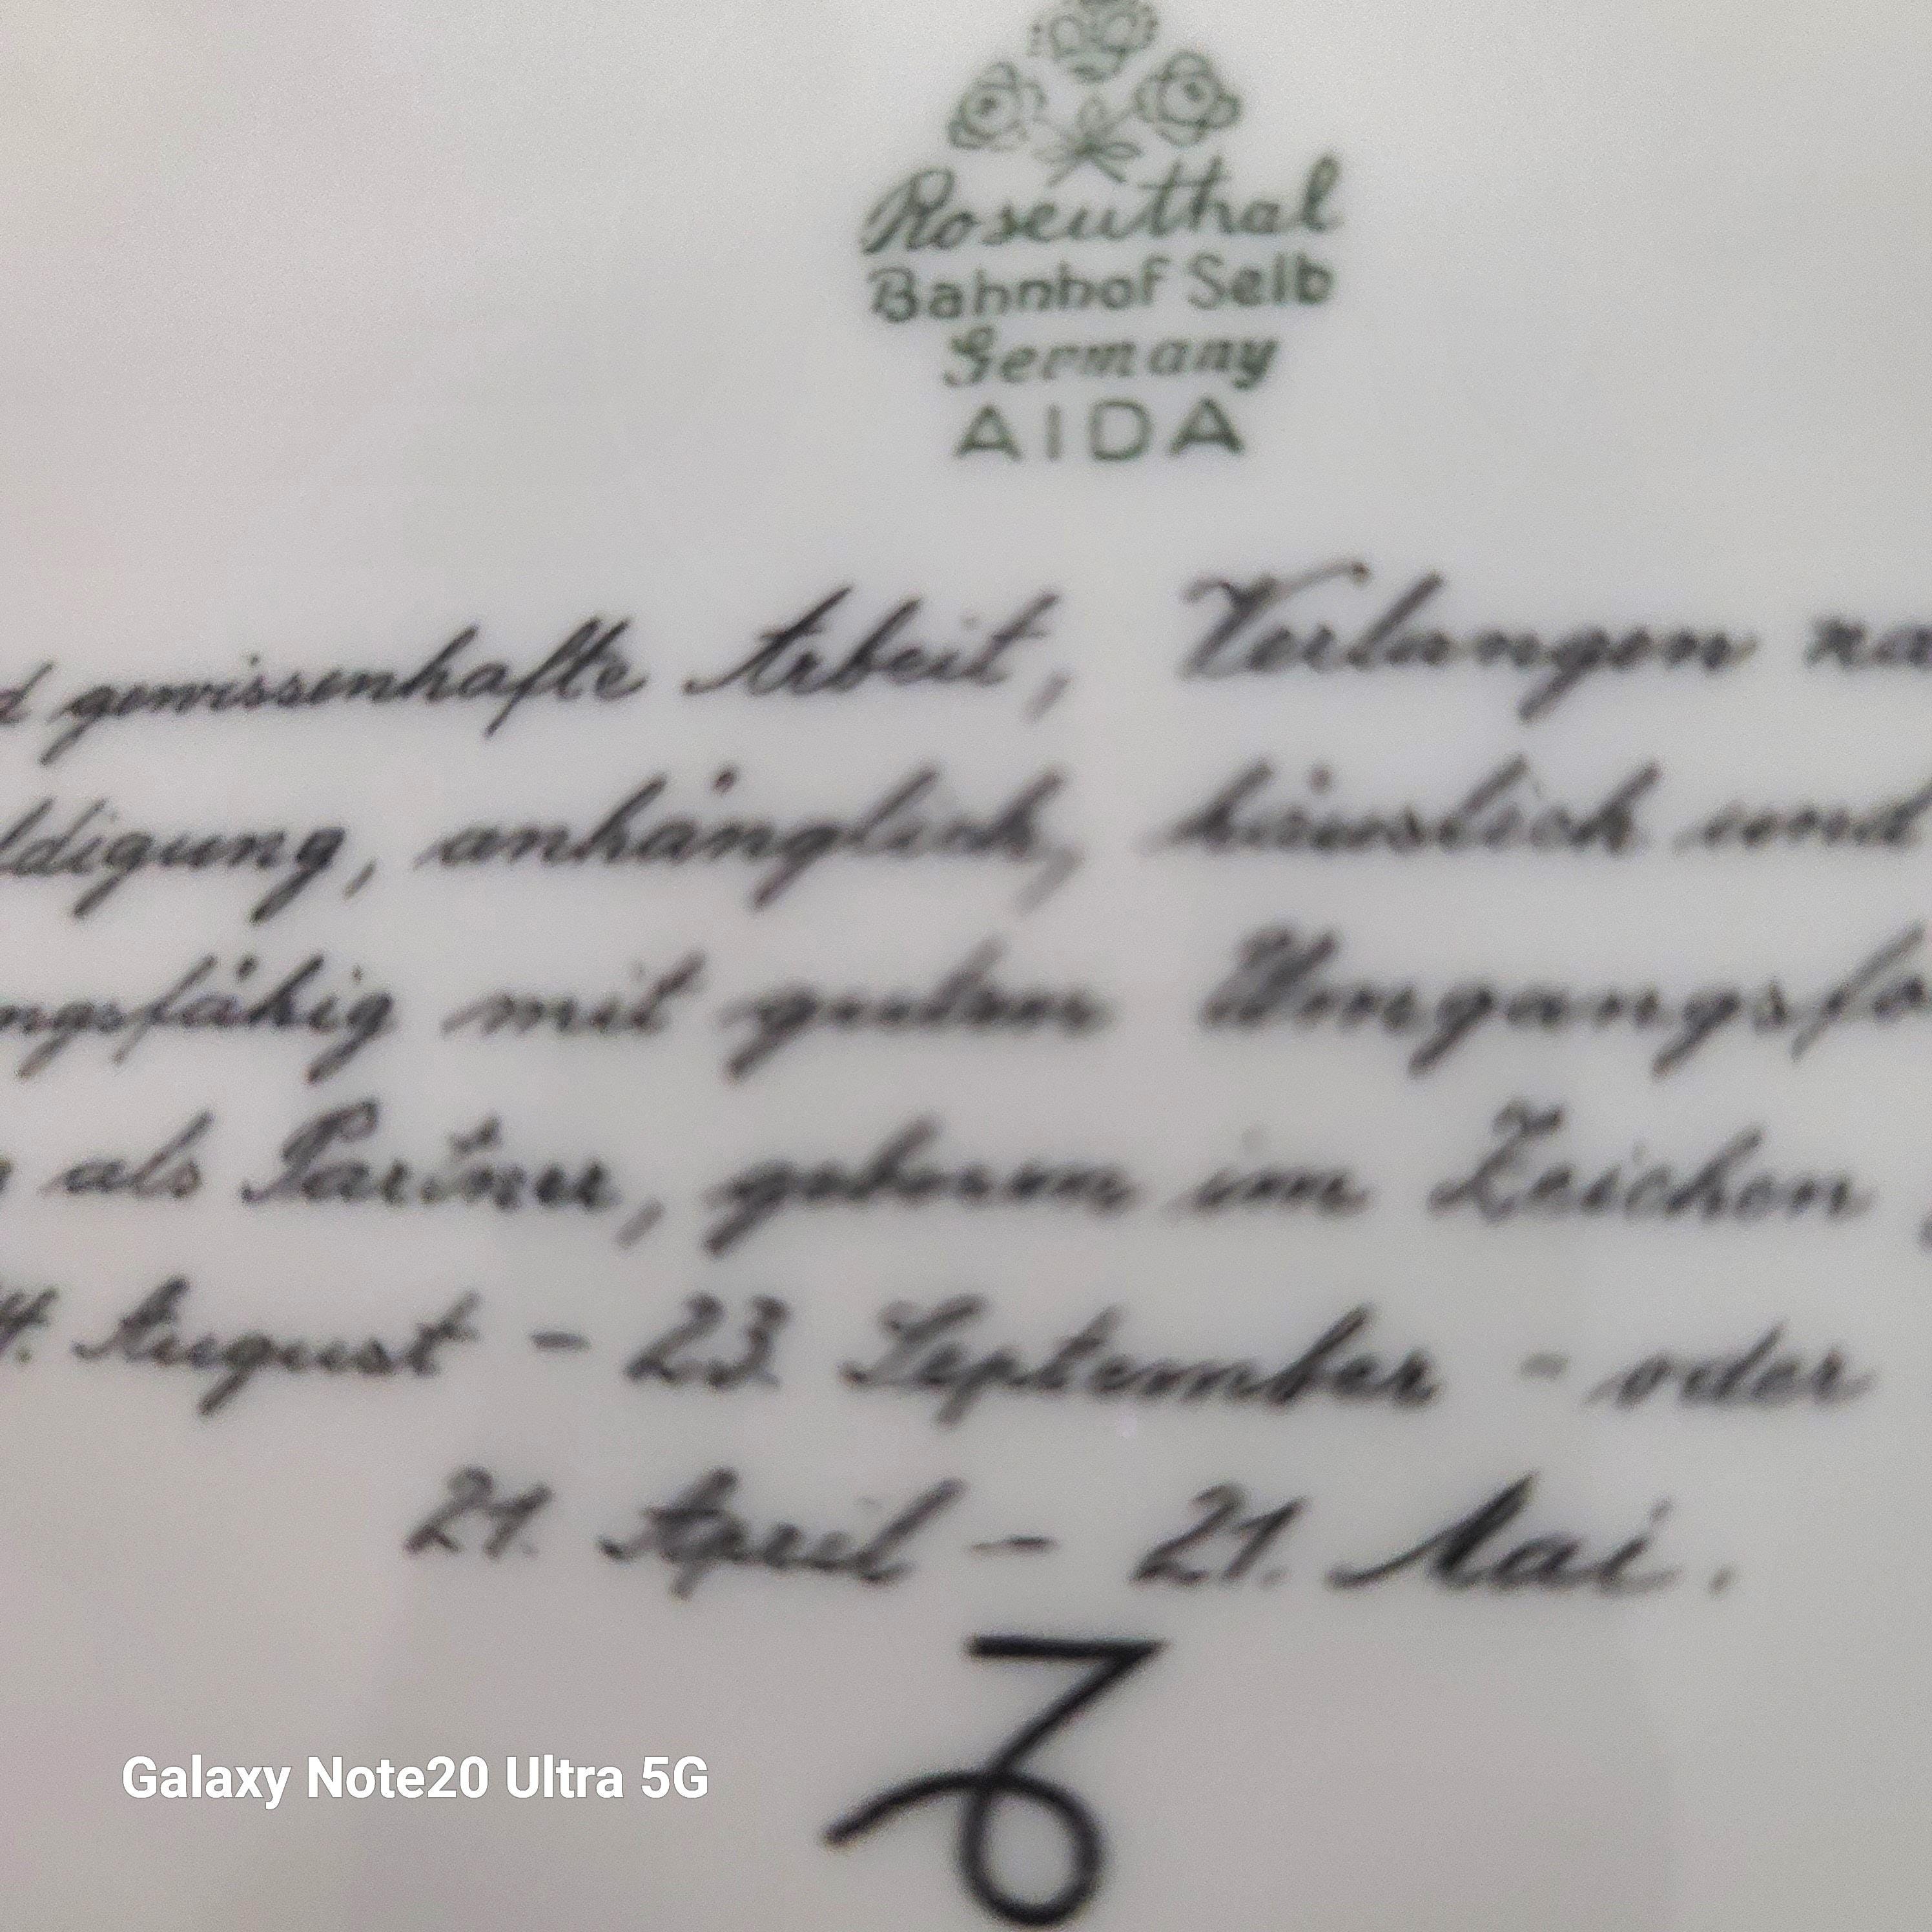 Rosenthal
Bahnhof Selb
Germany
AIDA
d gewissenhafte Arbeit, Verlangen na
ldigung, anhänglich, häuslich und
ngsfähig mit guten Umgangsfo
als Partner, geboren im Zeichen
4. August - 23. September - oder
21. April - 21. Mai.
Galaxy Note20 Ultra 5G